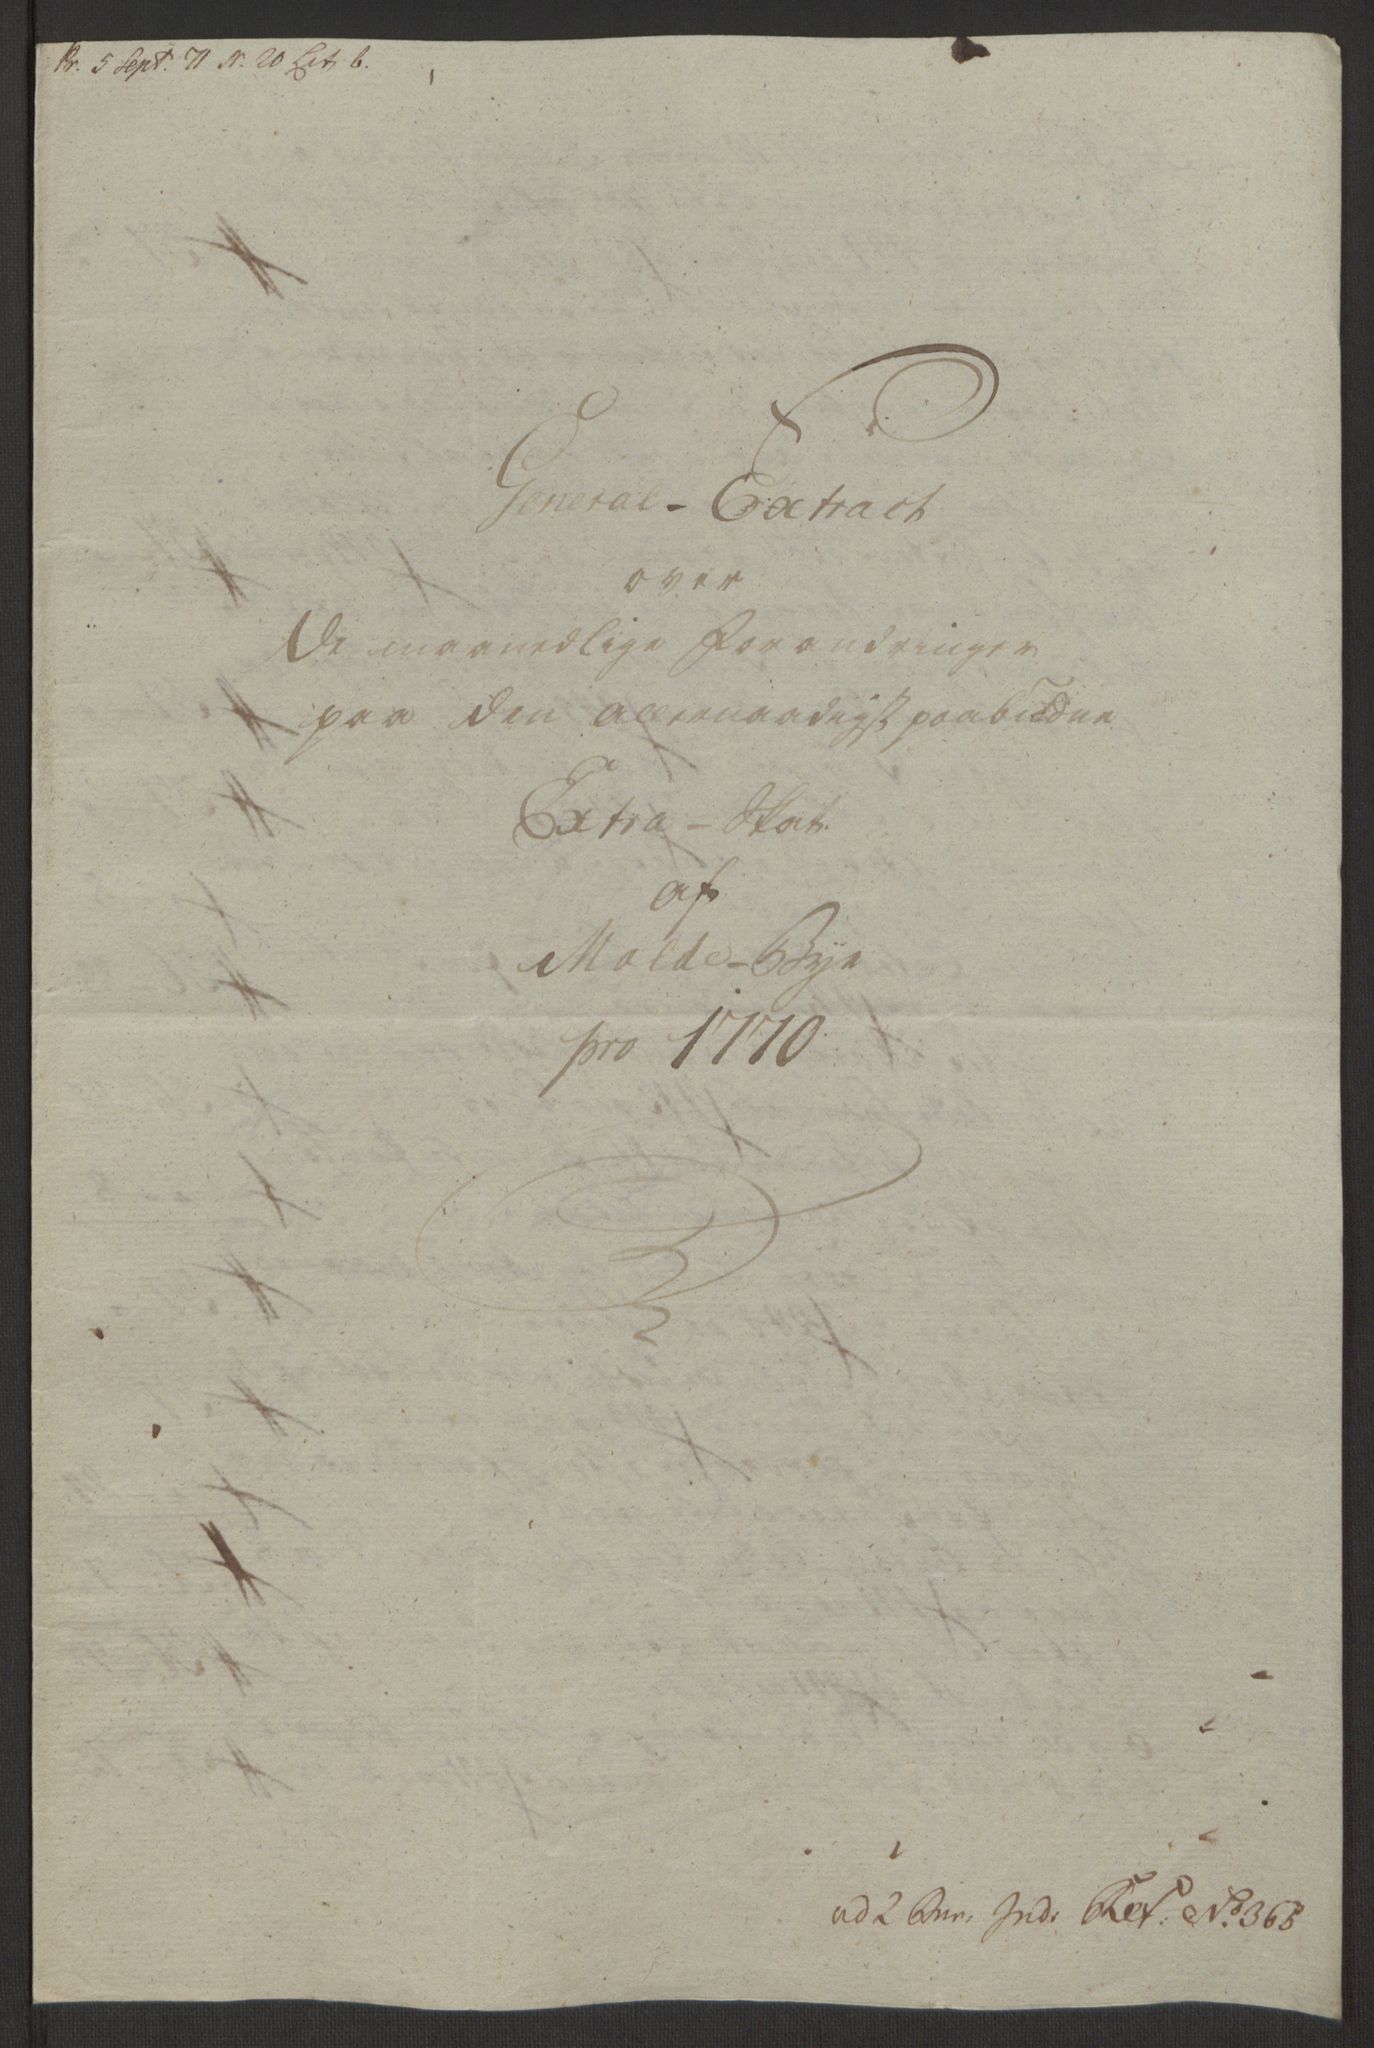 Pr. 5 Sept. 71 N. 20 Lit b.
General-Extract
over
De maanedlige Forandringer
paa den allernaadigst paabudne
Extra-Skat
af
Molde-Bye
pro 1770
ad 2 Bur. Ind: Ref: No. 368